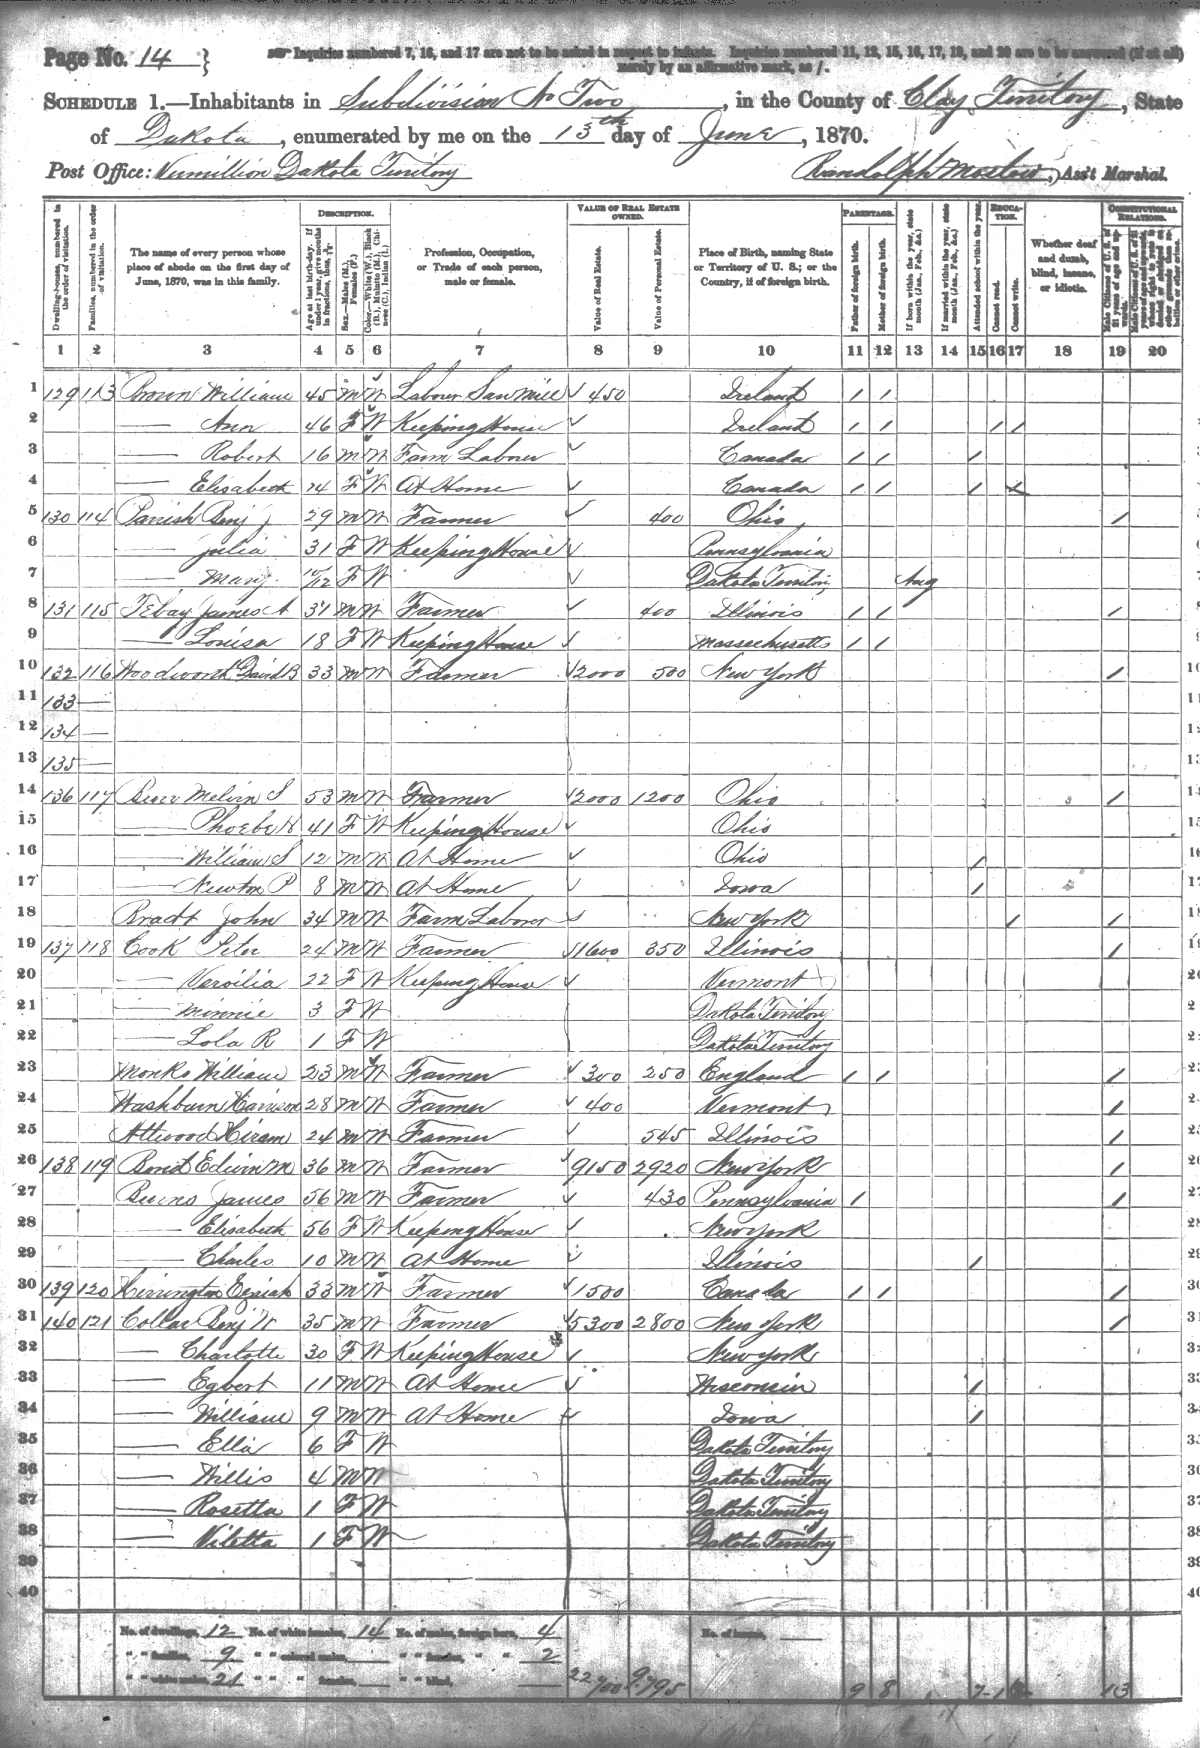 Page No. 14 } ☞ Inquiries numbered 7, 16, and 17 are not to be asked in respect to infants. Inquiries numbered 11, 12, 15, 16, 17, 19, and 20 are to be answered (if at all)
merely by an affirmative mark, as /.
SCHEDULE 1.—Inhabitants in Subdivision No Two, in the County of Clay Territory, State
of Dakota, enumerated by me on the 13th day of June, 1870.
Post Office: Vermillion Dakota Territory Randolph Ass't Marshal.
DESCRIPTION. VALUE OF REAL ESTATE OWNED. PARENTAGE. EDUCATION. CONSTITUTIONAL RELATIONS.
Dwelling-houses, numbered in the order of visitation. Families, numbered in the order of visitation. The name of every person whose place of abode on the first day of June, 1870, was in this family. Age at last birth-day. If under 1 year, give months in fractions, thus, Sex.—Males (M.), Females (F.) Color.—White (W.), Black (B.), Mulatto (M.), Chinese (C.), Indian (I.) Profession, Occupation, or Trade of each person, male or female. Value of Real Estate. Value of Personal Estate. Place of Birth, naming State or Territory of U. S.; or the Country, if of foreign birth. Father of foreign birth. Mother of foreign birth. If born within the year, state month (Jan., Feb., &c.) If married within the year, state month (Jan., Feb., &c.) Attended school within the year. Cannot read. Cannot write. Whether deaf and dumb, blind, insane, or idiotic.
1 2 3 4 5 6 7 8 9 10 11 12 13 14 15 16 17 18 19 20
1 129 113 Brown William 45 M W Laborer Saw Mill 450 Ireland / /
2 — Ann 46 F W Keeping House Ireland / / / /
3 — Robert 16 M W Farm Laborer Canada / / /
4 — Elisabeth 14 F W At Home Canada / / /
5 130 114 Parrish Benj J 29 M W Farmer 400 Ohio /
6 — Julia 31 F W Keeping House Pennsylvania
7 — Mary 10/12 F W Dakota Territory Aug
8 131 115 Tebay James A 37 M W Farmer 400 Illinois / / /
9 — Louisa 18 F W Keeping House Massachusetts / /
10 132 116 Woodworth David B 33 M W Farmer 2000 500 New York /
11 133 —
12 134 —
13 135 —
14 136 117 Melvin S 53 M W Farmer 2000 1200 Ohio /
15 — Phoebe H 41 F W Keeping House Ohio
16 — William S 12 M W At Home Ohio /
17 — Newton P 8 M W At Home Iowa /
18 Bradt John 34 M W Farm Laborer New York / /
19 137 118 Cook Peter 24 M W Farmer 1600 350 Illinois /
20 — Versilia 22 F W Keeping House Vermont
21 — Minnie 3 F W Dakota Territory
22 — Lola R 1 F W Dakota Territory
23 Monks William 23 M W Farmer 300 250 England / / /
24 Washburn Harrison 28 M W Farmer 400 Vermont /
25 Attwood Hiram 24 M W Farmer 545 Illinois /
26 138 119 Bond Edwin M 36 M W Farmer 9150 2920 New York /
27 Burns James 56 M W Farmer 430 Pennsylvania / /
28 — Elisabeth 56 F W Keeping House New York
29 — Charles 10 M W At Home Illinois /
30 139 120 33 M W Farmer 1500 Canada / / /
31 140 121 Collar Benj W 35 M W Farmer 5300 2800 New York /
32 — Charlotte 30 F W Keeping House New York
33 — Egbert 11 M W At Home Wisconsin /
34 — William 9 M W At Home Iowa /
35 — Ella 6 F W Dakota Territory
36 — Willis 4 M W Dakota Territory
37 — Rosetta 1 F W Dakota Territory
38 — Viletta 1 F W Dakota Territory
39
40
No. of dwellings, 12 No. of white females, 14 No. of males, foreign born, 4
" " families, 9 " " colored males, " " females, " " 2
" " white males, 24 " " " females, " " blind, 22700 9.795 9 8 13